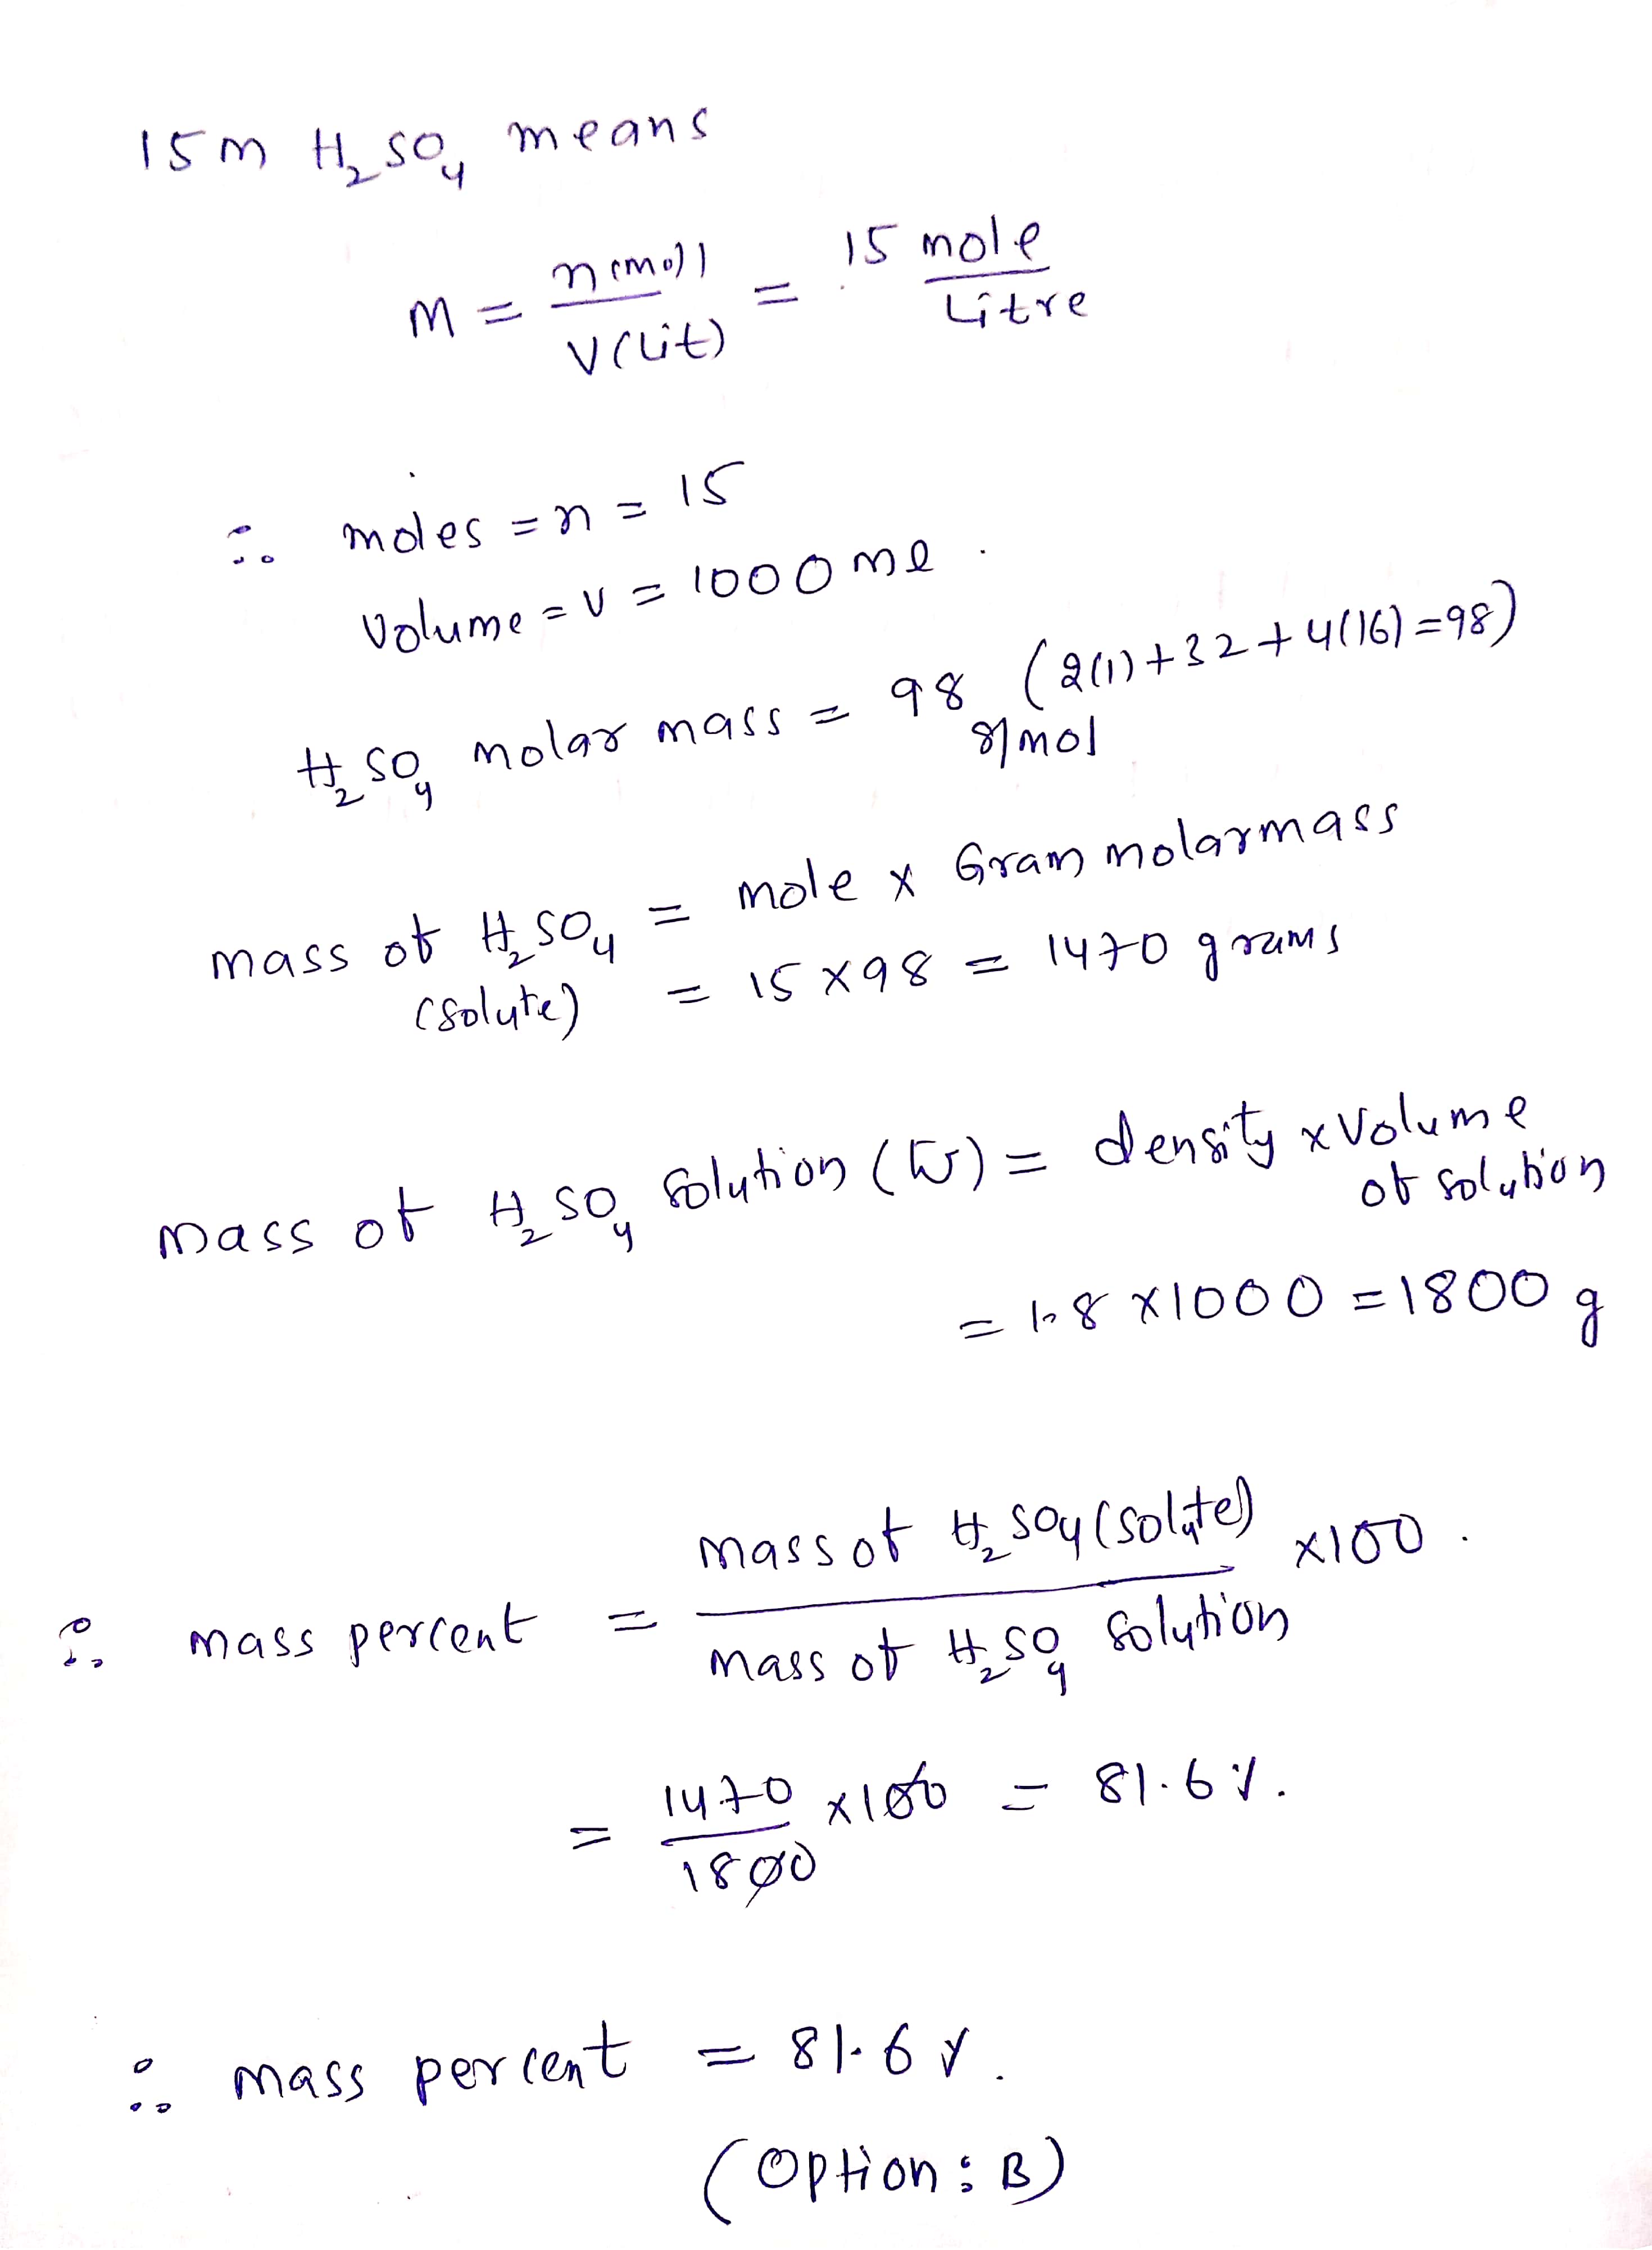 15M H₂SO₄ means
M = n(mol) / V(Lit) = 15 mole / Litre
∴ moles = n = 15
Volume = V = 1000 ml.
H₂SO₄ molar mass = 98 g/mol (2(1)+32+4(16)=98)
mass of H₂SO₄ = mole x Gram molarmass
(solute) = 15 x 98 = 1470 grams
mass of H₂SO₄ solution (W) = density x Volume of solution
= 1.8 x 1000 = 1800 g
∴ mass percent = mass of H₂SO₄ (solute) / mass of H₂SO₄ solution x 100.
= 1470 / 1800 x 100 = 81.6 %.
∴ mass percent = 81.6 %.
(Option : B)